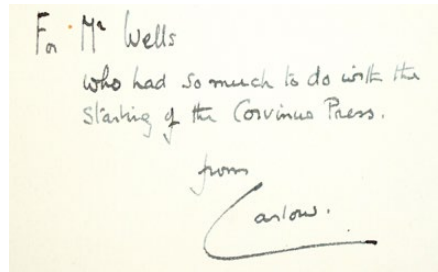 For Mr Wells
who had so much to do with the
starting of the Corvinus Press.
from
Carlow.